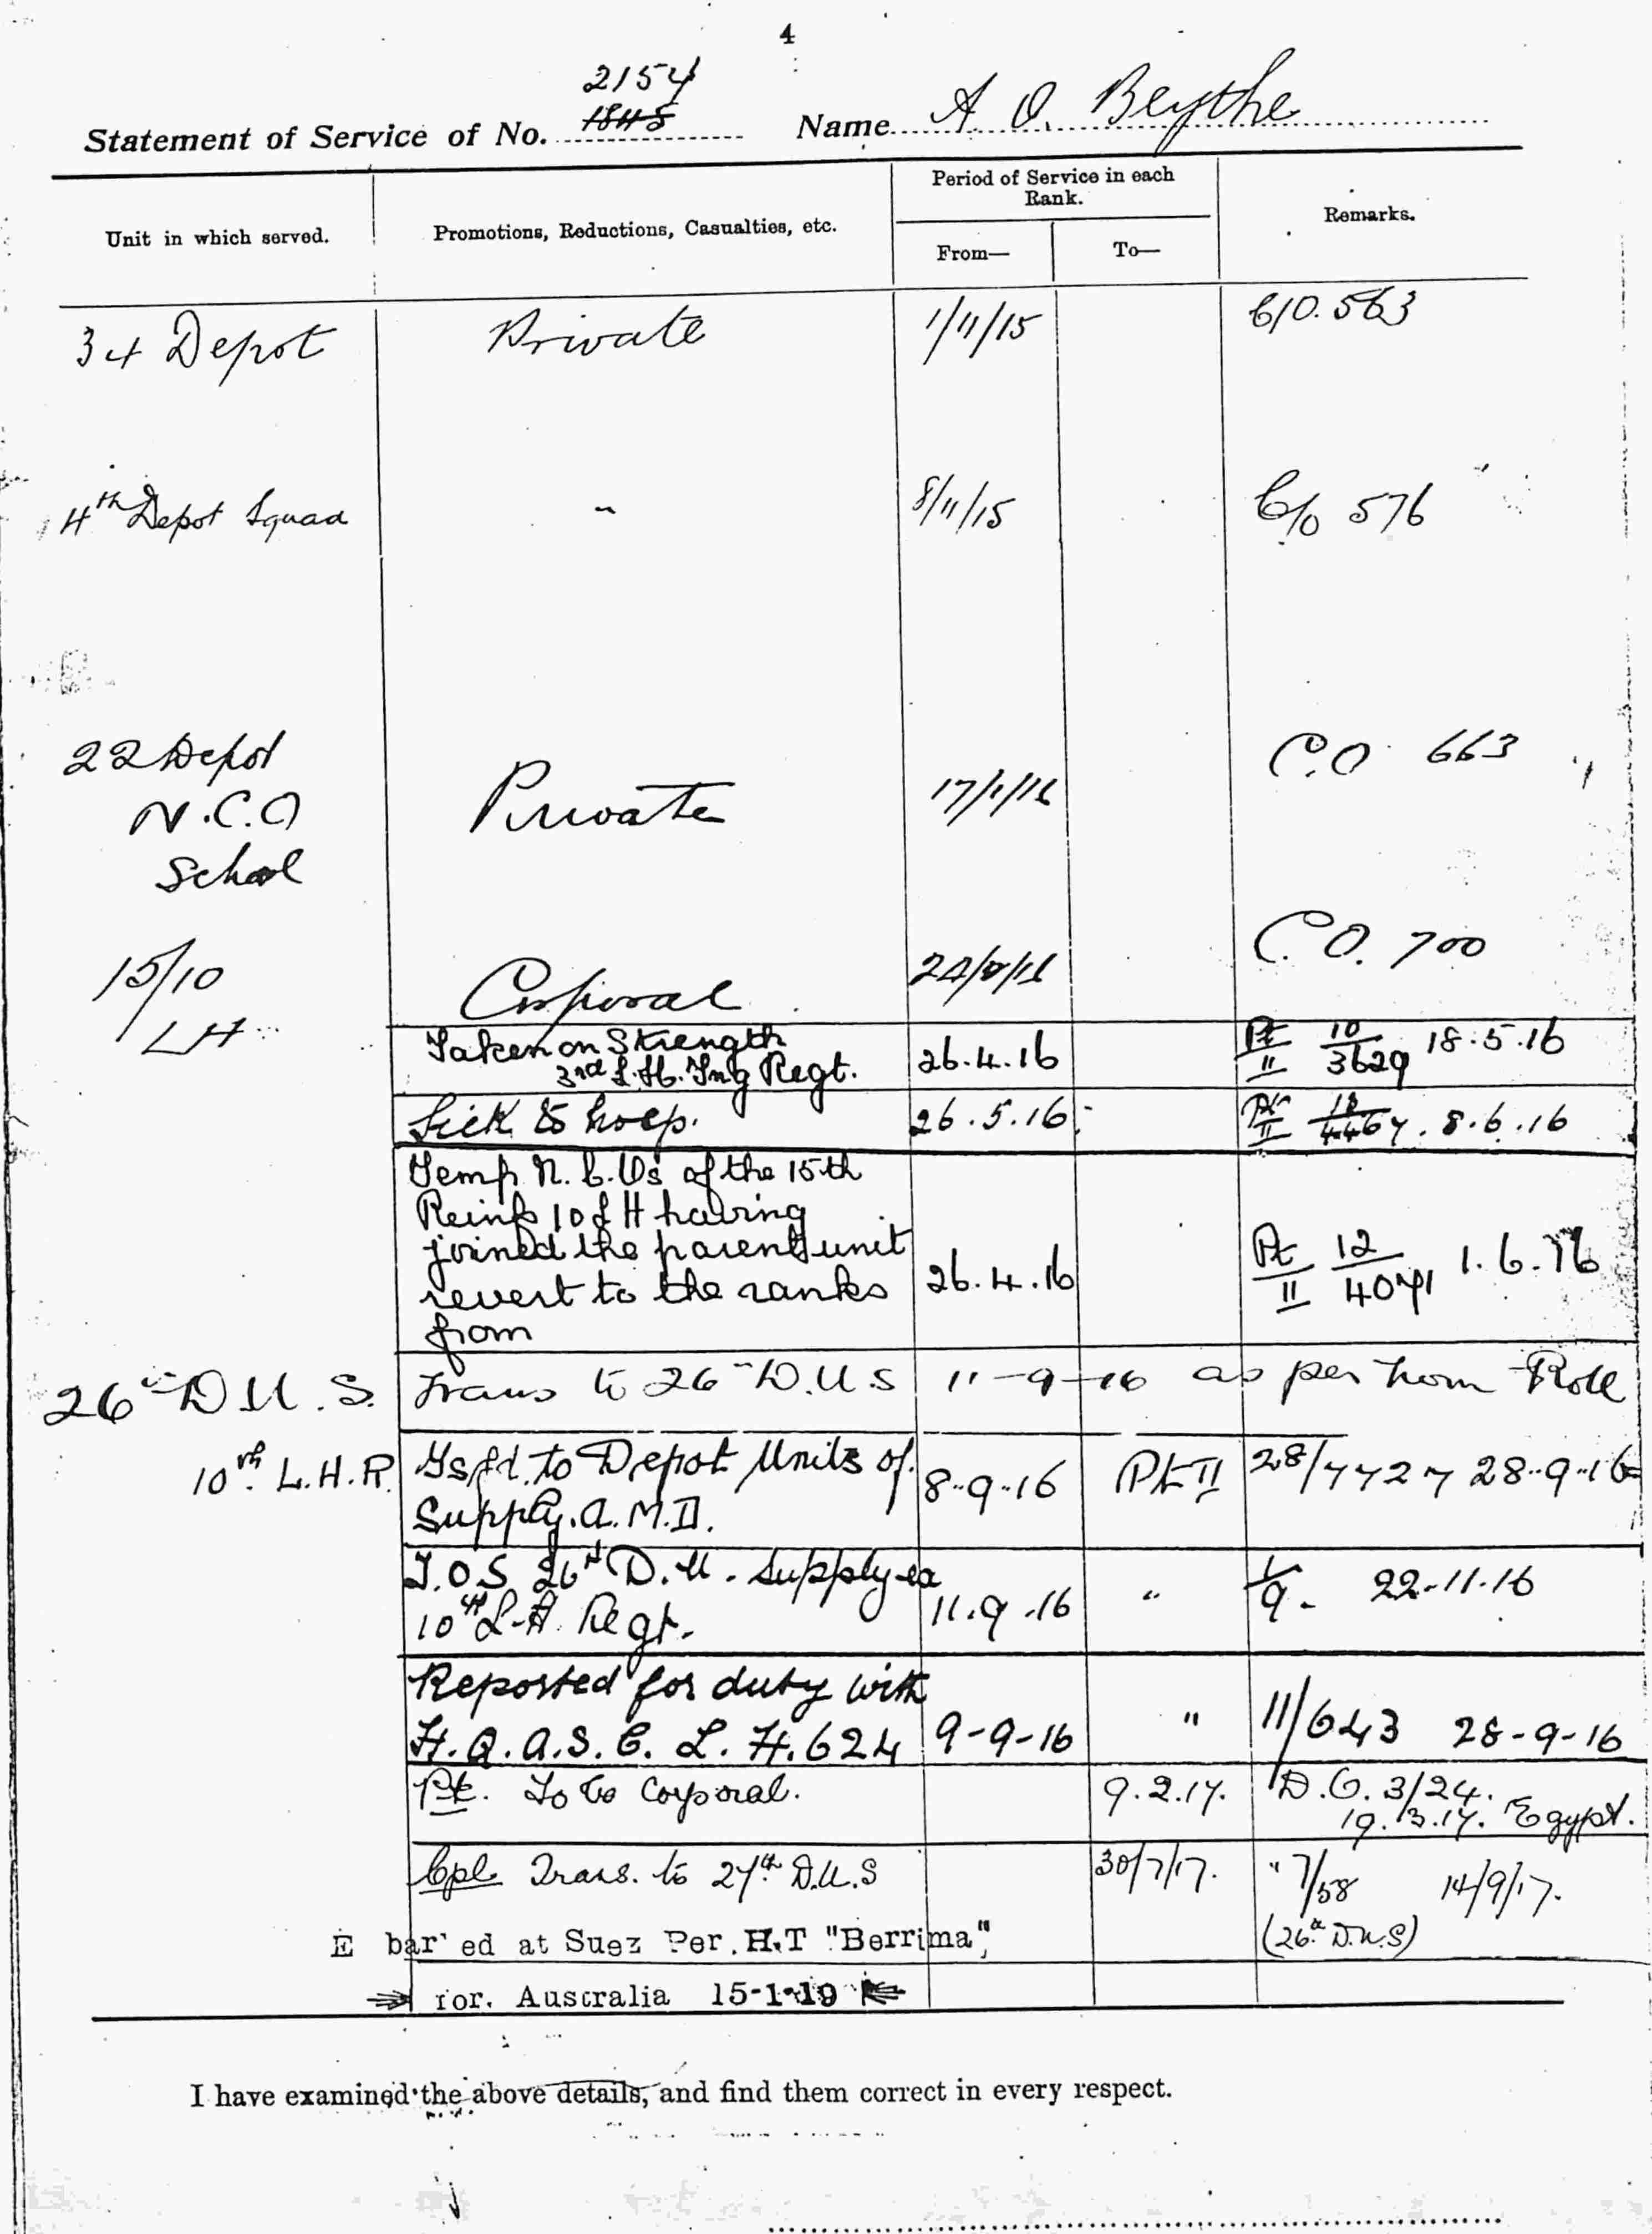 4
2154
1845
Statement of Service of No. Name A. O. Beythe
Unit in which served. Promotions, Reductions, Casualties, etc. Period of Service in each Rank. Remarks.
From— To—
34 Depot Private 1/11/15 C/O. 563
4th Depot Squad " 8/11/15 C/o 576
22 Depot C.O. 663
N.C.O Private 17/1/16
School
15/10 Corporal C.O. 700
LH
Taken on Strength
3rd L.H. Tng Regt. 26.4.16 Pt II 10/3629 18.5.16
Sick to hosp. 26.5.16 Pt II 8.6.16
Temp N.C.Os of the 15th
Reinfs 10 L H having
joined the parent unit
revert to the ranks 26.4.16 Pt II 12/4071 1.6.16
from
26th D.U.S. Trans to 26th D.U.S 11-9-16 as per nom Roll
10th L.H.R. Tsfd. to Depot Units of 8-9-16 Pt II 28/7727 28-9-16
Supply. A.M.D.
T.O.S 26th D.U. Supply ex
10th L.H. Regt. 11.9.16 " 1/9. 22-11-16
Reported for duty with
H.Q.A.S.C. L.H. 624 9-9-16 " 11/643 28-9-16
Pte. To be Corporal. 9.2.17. D.O. 3/24.
19.3.17. Egypt.
Cpl Trans. to 27th D.U.S 30/7/17. " 7/58 14/9/17.
(26th D.U.S)
E bar ed at Suez Per. H.T "Berrima",
for. Australia 15-1-19
I have examined the above details, and find them correct in every respect.